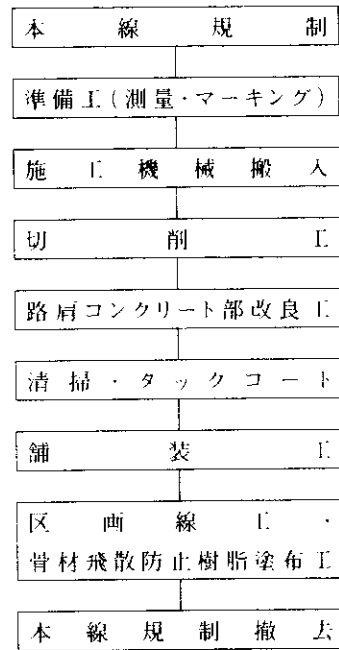 本線規制
準備工(測量・マーキング)
施工機械搬入
切削工
路肩コンクリート部改良工
清掃・タックコート
舗装工
区画線工・
骨材飛散防止樹脂塗布工
本線規制撤去